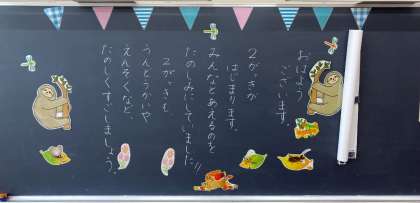 おはよう
ございます。
2がっきが
はじまります。
みんなとあえるのを
たのしみにしていました!!
2がっきも、
うんどうかいや、
えんそくなど、
たのしくすごしましょう。